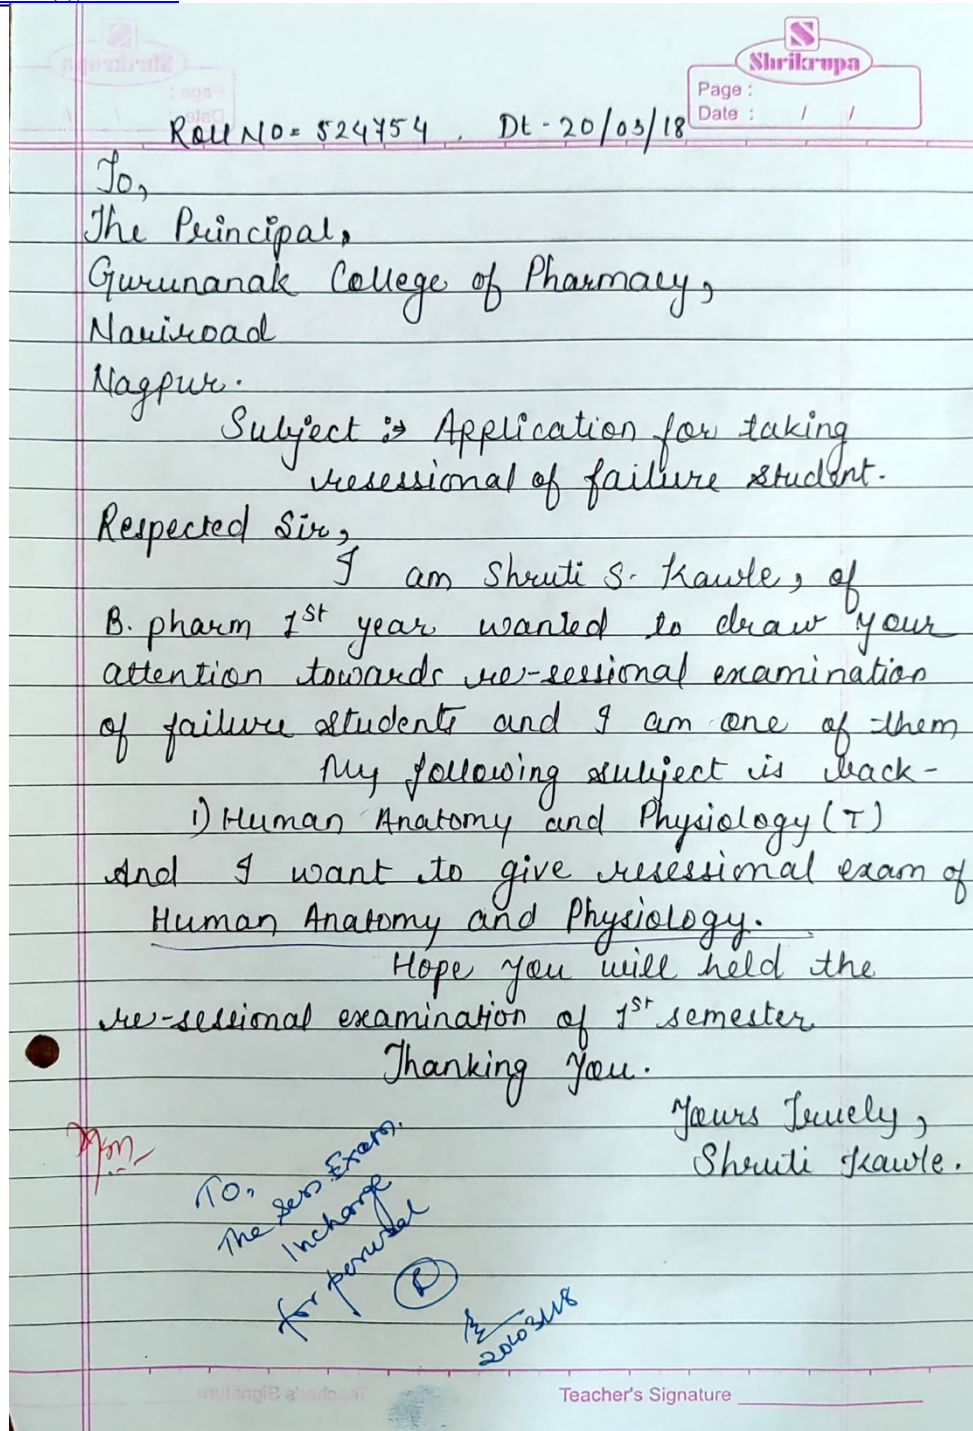 Shrikrupa
Page :
Date : / /
Roll NO = 524754 . Dt - 20/03/18
To,
The Principal,
Gurunanak College of Pharmacy,
Nariroad
Nagpur.
Subject :→ Application for taking
resessional of failure student.
Respected Sir,
I am Shruti S. Kawle, of
B. pharm 1st year wanted to draw your
attention towards re-sessional examination
of failure students and I am one of them
My following subject is back -
1) Human Anatomy and Physiology (T)
And I want to give resessional exam of
Human Anatomy and Physiology.
Hope you will held the
re-sessional examination of 1st semester
Thanking You.
Yours Truely,
Shruti Kawle.
To,
The Sess Exam.
Incharge
for perusal
20/03/18
Teacher's Signature